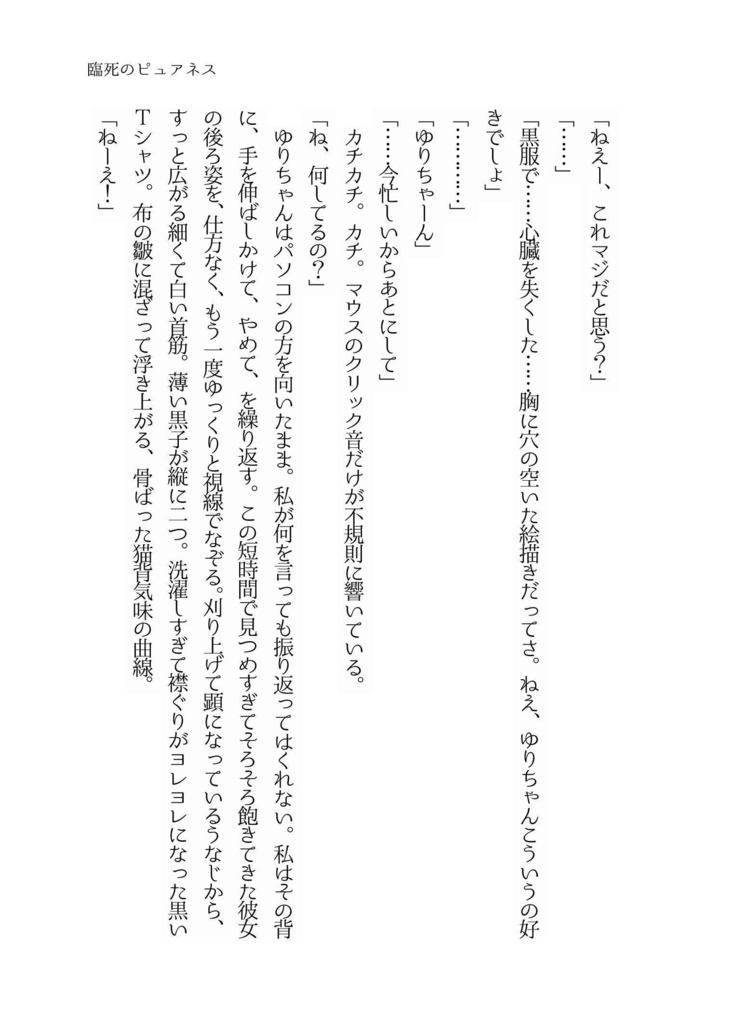 臨死のピュアネス
「ねえー、これマジだと思う？」
「……」
「黒服で……心臓を失くした……胸に穴の空いた絵描きだってさ。ねえ、ゆりちゃんこういうの好
きでしょ」
「…………」
「ゆりちゃーん」
「……今忙しいからあとにして」
カチカチ。カチ。マウスのクリック音だけが不規則に響いている。
「ね、何してるの？」
ゆりちゃんはパソコンの方を向いたまま。私が何を言っても振り返ってはくれない。私はその背
に、手を伸ばしかけて、やめて、を繰り返す。この短時間で見つめすぎてそろそろ飽きてきた彼女
の後ろ姿を、仕方なく、もう一度ゆっくりと視線でなぞる。刈り上げて顕になっているうなじから、
すっと広がる細くて白い首筋。薄い黒子が縦に二つ。洗濯しすぎて襟ぐりがヨレヨレになった黒い
Ｔシャツ。布の皺に混ざって浮き上がる、骨ばった猫背気味の曲線。
「ねーえ！」